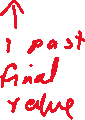 1 past
final
value